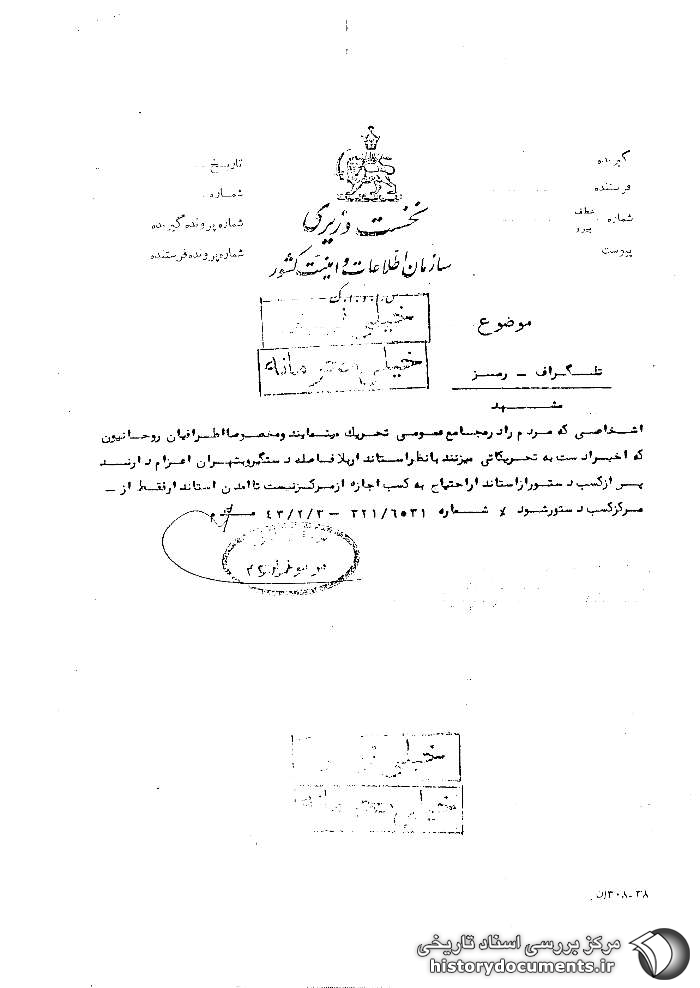 گیرنده
فرستنده
شماره
عطف
پیرو
پیوست
تاریخ
شماره
شماره پرونده گیرنده
شماره پرونده فرستنده
نخست وزیری
سازمان اطلاعات و امنیت کشور
س.ا.و.ا.ک
خیلی
خیلی محرمانه
موضوع
تلگراف - رمز
مشهد
اشخاصی که مردم را در مجامع عمومی تحریک مینمایند و مخصوصا اطرافیان روحانیون
که اخیرا دست به تحریکاتی میزنند با نظر استاندار بلافاصله دستگیر و بتهران اعزام دارند
پس از کسب دستور از استاندار احتیاج به کسب اجازه از مرکز نیست تا آمدن استاندار فقط از -
مرکز کسب دستور شود × شماره ۲۲۱/۶۵۳۱ - ۴۳/۲/۳ مقدم
خیلی
خیلی محرمانه
۳۸-۳۰۸ان
مرکز بررسی اسناد تاریخی
historydocuments.ir